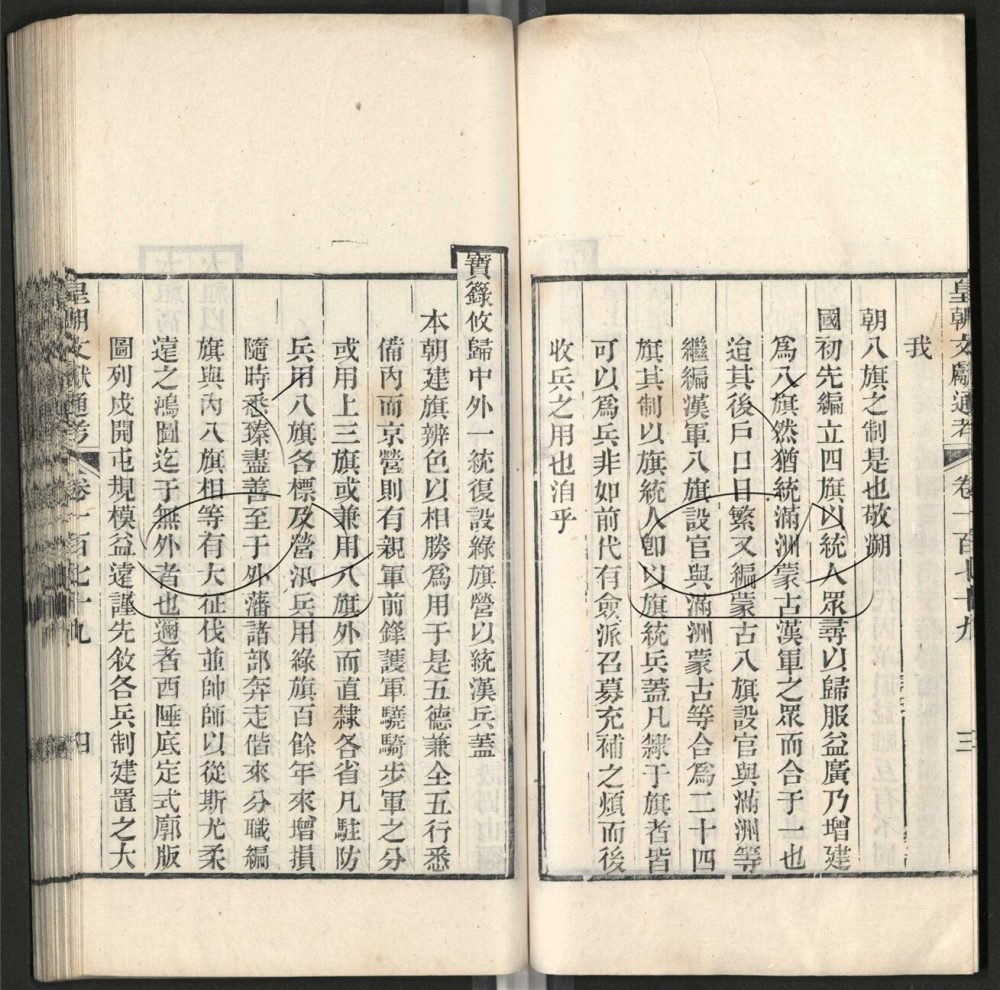 皇朝文獻通考 卷一百七十九 三
我
朝八旗之制是也敬溯
國初先編立四旗以統人眾尋以歸服益廣乃增建
為八旗然猶統滿洲蒙古漢軍之眾而合于一也
迨其後戶口日繁又編蒙古八旗設官與滿洲等
繼編漢軍八旗設官與滿洲蒙古等合為二十四
旗其制以旗統人卽以旗統兵蓋凡隸于旗者皆
可以為兵非如前代有僉派召募充補之煩而後
收兵之用也洎乎
寶籙攸歸中外一統復設綠旗營以統漢兵蓋
本朝建旗辨色以相勝為用于是五德兼全五行悉
備內而京營則有親軍前鋒護軍驍騎步軍之分
或用上三旗或兼用八旗外而直隸各省凡駐防
兵用八旗各標及營汛兵用綠旗百餘年來增損
隨時悉臻盡善至于外藩諸部奔走偕來分職編
旗與內八旗相等有大征伐並帥師以從斯尤柔
遠之鴻圖迄于無外者也邇者西陲底定式廓版
圖列戍開屯規模益遠謹先敘各兵制建置之大
皇朝文獻通考 卷一百七十九 四